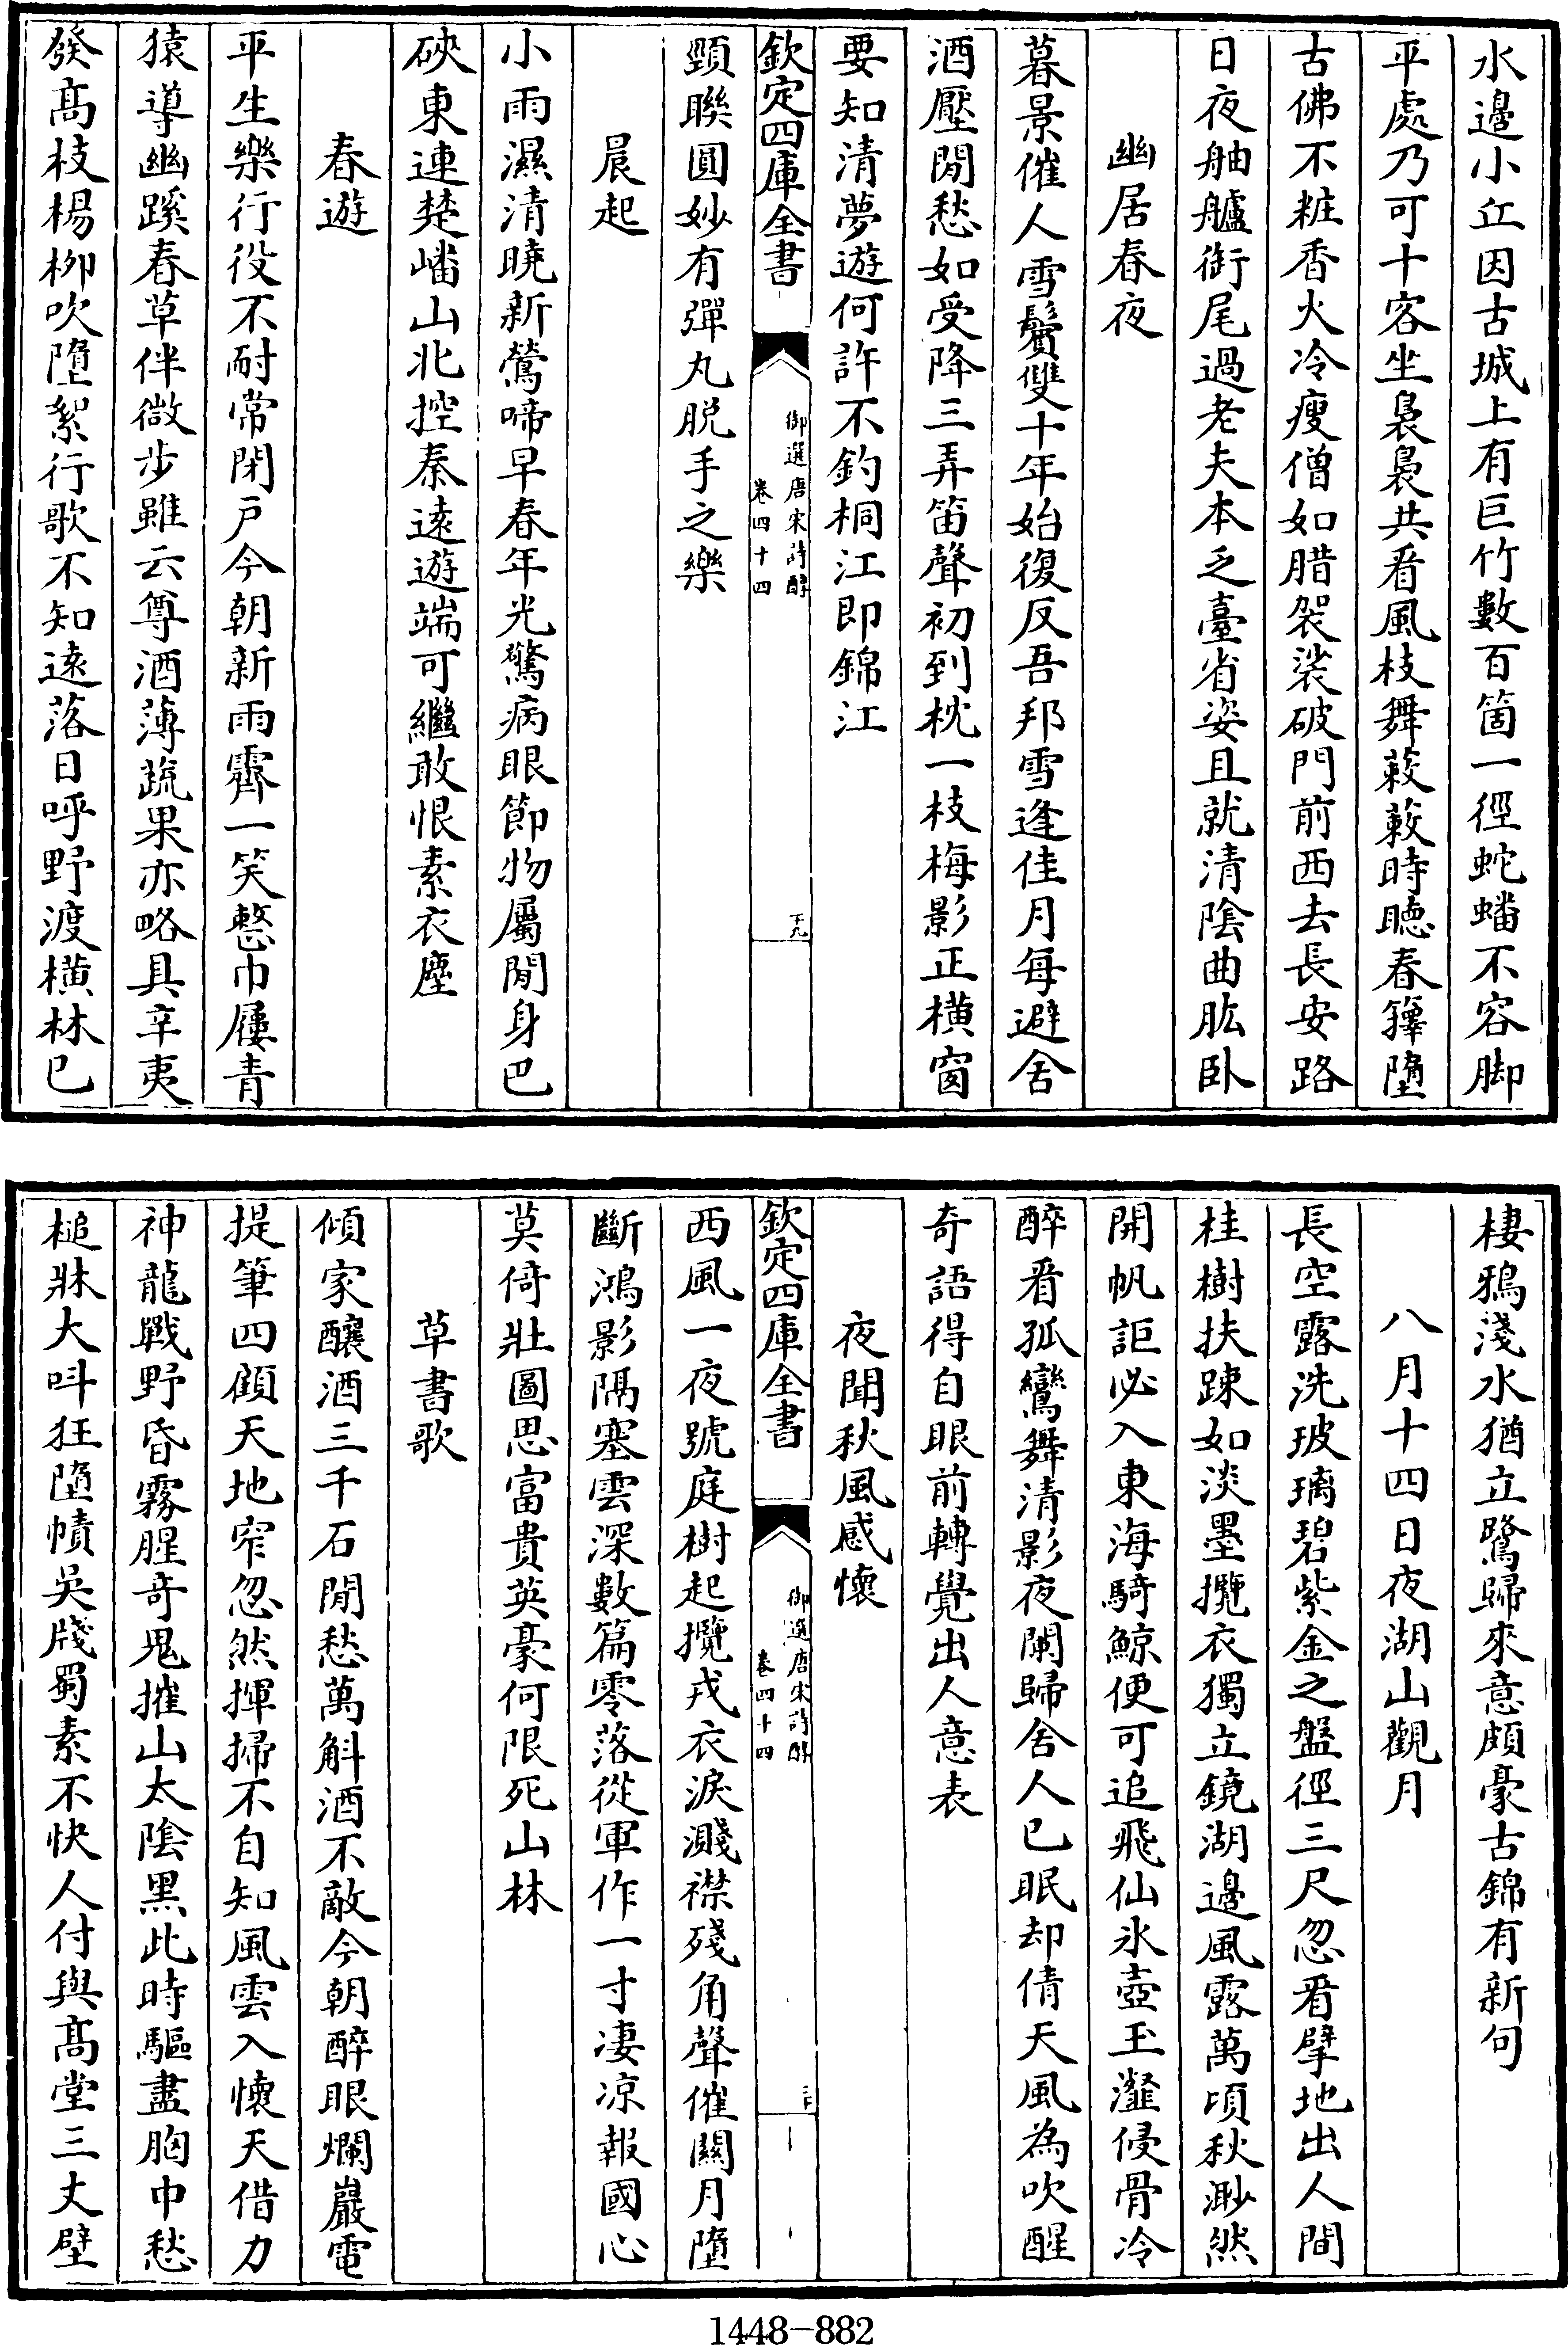 水邊小丘因古城上有巨竹數百箇一徑蛇蟠不容脚
平處乃可十客坐裊裊共看風枝舞蔌蔌時聴春籜墮
古佛不粧香火冷瘦僧如腊袈裟破門前西去長安路
日夜舳艫銜尾過老夫本乏臺省姿且就清隂曲肱卧
幽居春夜
暮景催人雪鬢雙十年始復反吾邦雪逢佳月每避舍
酒壓閒愁如受降三弄笛聲初到枕一枝梅影正横窗
要知清夢遊何許不釣桐江即錦江
欽定四庫全書
御選唐宋詩醇
卷四十四
十九
頸聯圓妙有彈丸脱手之樂
晨起
小雨濕清曉新鶯啼早春年光驚病眼節物屬閒身巴
硤東連楚嶓山北控秦遠遊端可繼敢恨素衣塵
春遊
平生樂行役不耐常閉戸今朝新雨霽一笑整巾屨青
猿導幽蹊春草伴微步雖云尊酒薄蔬果亦略具辛夷
發髙枝楊栁吹墮絮行歌不知遠落日呼野渡横林已
棲鴉淺水猶立鷺歸來意頗豪古錦有新句
八月十四日夜湖山觀月
長空露洗玻璃碧紫金之盤徑三尺忽看擘地出人間
桂樹扶踈如淡墨攬衣獨立鏡湖邊風露萬頃秋渺然
開帆詎必入東海騎鯨便可追飛仙氷壺玉瀣侵骨冷
醉看孤鸞舞清影夜闌歸舍人已眠却倩天風為吹醒
奇語得自眼前轉覺出人意表
夜聞秋風感懷
欽定四庫全書
御選唐宋詩醇
卷四十四
三十
西風一夜號庭樹起攬戎衣淚濺襟殘角聲催關月墮
斷鴻影隔塞雲深數篇零落從軍作一寸凄凉報國心
莫倚壯圖思富貴英豪何限死山林
草書歌
傾家釀酒三千石閒愁萬斛酒不敵今朝醉眼爛巖電
提筆四顧天地窄忽然揮掃不自知風雲入懷天借力
神龍戰野昏霧腥奇鬼摧山太隂黑此時驅盡胸中愁
槌牀大呌狂墮幘吳牋蜀素不快人付與髙堂三丈壁
1448—882